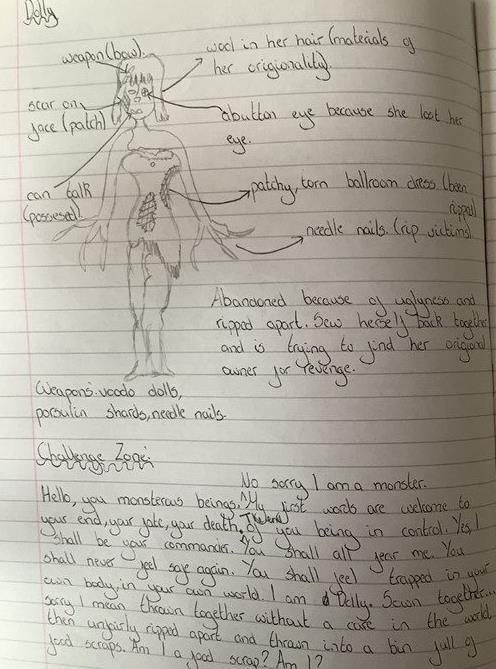 Dolly
weapon (bow).
wool in her hair (materials of
her origionality).
scar on
face (patch)
a button eye because she lost her
eye.
can talk
(possesed)
patchy, torn ballroom dress (been
ripped)
needle nails. (rip victims)
Abandoned because of uglyness and
ripped apart. Sew herself back together
and is trying to find her origional
owner for revenge.
Weapons: voodo dolls,
porsulin shards, needle nails.
Challenge Zone:
No sorry I am a monster.
Hello, you monsterous beings. My first words are welcome to
your end, your fate, your death, of you being in control. Yes, I
The end
shall be your commander. You shall all fear me. You
shall never feel safe again. You shall feel trapped in your
own body, in your own world. I am Dolly. Sewn together...
sorry I mean thrown together without a care in the world
then unfairly ripped apart and thrown into a bin full of
food scraps. Am I a food scrap? Am I?